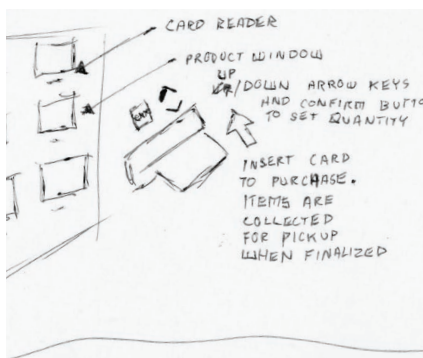 CARD READER
PRODUCT WINDOW
UP
/DOWN ARROW KEYS
AND CONFIRM BUTTO
TO SET QUANTITY
INSERT CARD
TO PURCHASE.
ITEMS ARE
COLLECTED
FOR PICKUP
WHEN FINALIZED